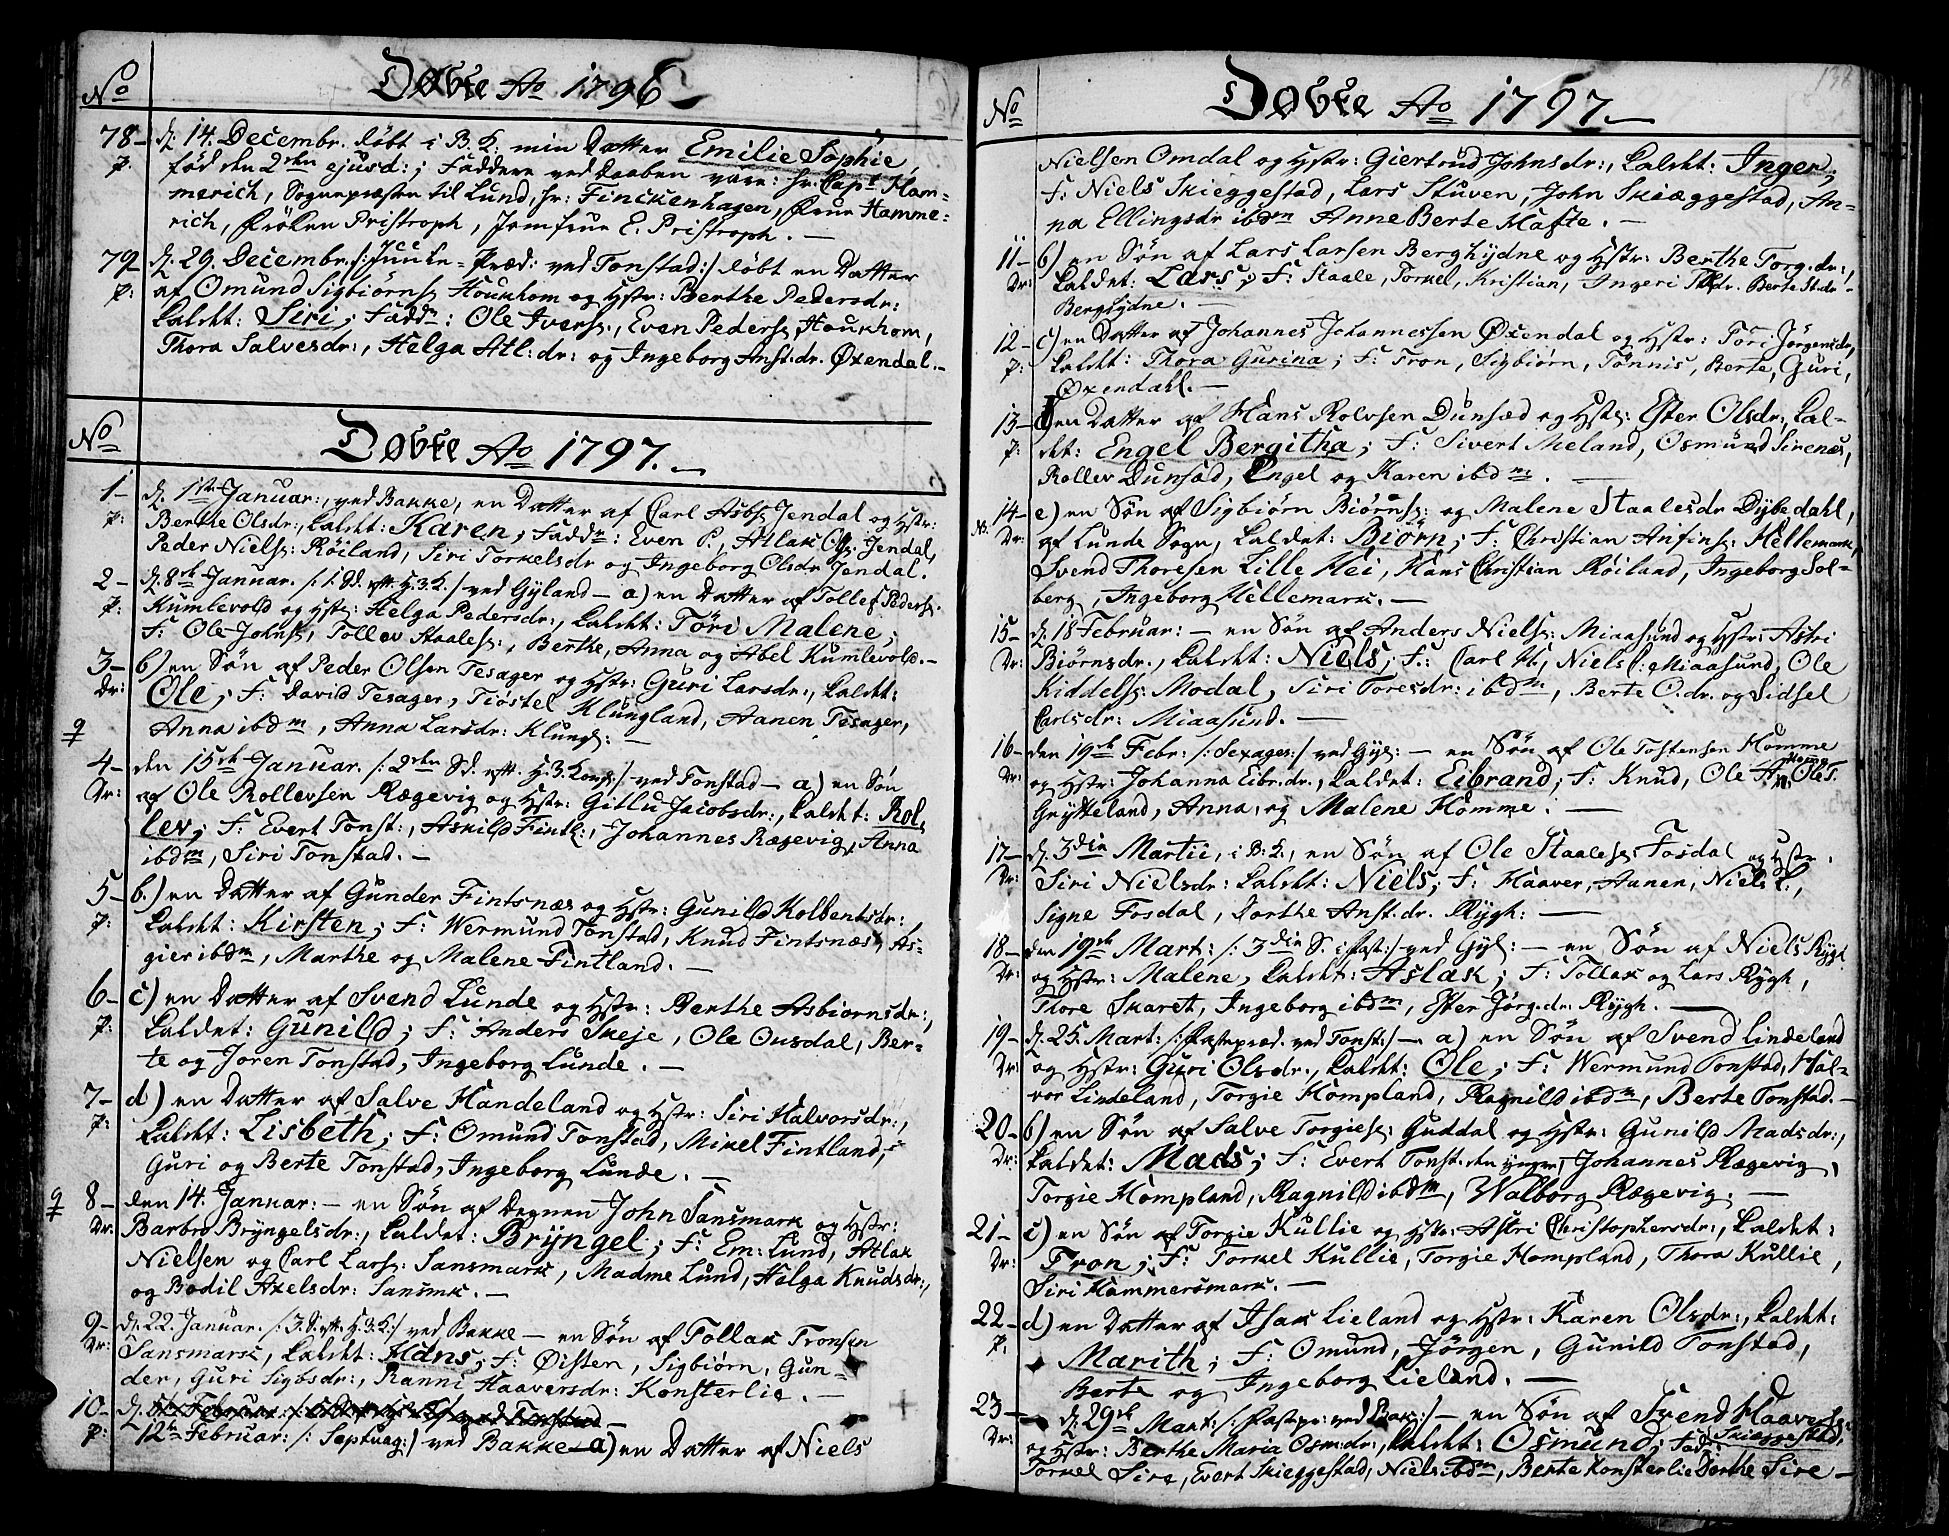 No
Døbte Ao 1796
78- d. 14. Decembr. døbt i B. K: min Datter Emilie Sophie,
p. fød den 2den ejusd:; Faddere ved Daaben vare: hr. Capt Ham-
merich, Sognepræsten til Lund, hr: Finckenhagen, Frue Hamme-
rich, Frøken Pristroph, Jomfrue E. Pristroph. -
79- d. 29. Decembr. /: Juule-Præd: ved Tonstad:/ døbt en Datter
p: af Omund Sigbiørns: Houkhom og Hstr: Berthe Pedersdr:
kaldet: Siri; Faddr: Ole Ivers:, Even Peders: Houkhom,
Thora Salvesdr:, Helga Atl:dr: og Ingeborg Anst:dr. Øxendal.-
No
Døbte Ao 1797.-
1- d. 1ste Januar:, ved Bakke, en Datter af Carl Asbs: Jendal og Hstr:
p: Berthe Olsdr:, kaldet: Karen; Faddr: Even P., Atlak Ols: Jendal,
Peder Niels: Røiland, Siri Torkelsdr og Ingeborg Olsdr Jendal.
2- d. 8de Januar. /: 1. Sd. eft. H. 3. K:/ ved Gyland - a) en Datter af Tollef Peders:
p: Kumlevold og Hstr: Helga Pedersdr:, kaldet: Tøri Malene;
F: Ole Johns:, Tollev Staales:, Berthe, Anna og Abel Kumlevold.-
3- b) en Søn af Peder Olsen Tesager og Hstr: Guri Larsdr:, kaldet:
Dr: Ole; F: David Tesager, Tiøstel Klungland, Aanen Tesager,
Anna ibdm, Anna Larsdr: Klungl: -
4- den 15de Januar. /: 2den Sd. eft. H. 3. Kong:/ ved Tonstad - a) en Søn
Dr: af Ole Rollevsen Rægevig og Hstr: Gitlu Jacobsdr:, kaldet: Rol-
lev; F: Evert Tonst:, Askild Fintl:, Johannes Rægevig, Anna
ibdm, Siri Tonstad. -
5- b.) en Datter af Gunder Fintsnæs og Hstr: Gunild Kolbentsdr:,
p: kaldet: Kirsten; F: Wermund Tonstad, Knud Fintsnæs, As-
gier ibdm, Marthe og Malene Fintland. -
6- c) en Datter af Svend Lunde og Hstr: Berthe Asbiørnsdr:,
p: kaldet: Gunild; F: Anders Skeje, Ole Ousdal, Ber-
te og Joren Tonstad, Ingeborg Lunde. -
7- d) en Datter af Salve Handeland og Hstr: Siri Halvorsdr:,
p: kaldet: Lisbeth; F: Omund Tonstad, Mikel Fintland,
Guri og Berte Tonstad, Ingeborg Lunde. -
8- den 14. Januar: - en Søn af Degnen John Sansmark og Hstr:
Dr: Barbro Bryngelsdr:, kaldet: Bryngel; F: Em: Lund, Atlak
Nielsen og Carl Lars: Sansmark, Madme Lund, Helga Knudsdr:,
og Bodil Axelsdr: Sansmk. -
9- d. 22. Januar. /: 3. S. eft. H. 3. K:/ ved Bakke - en Søn af Tollak Tronsen
Dr: Sansmark, kaldet: Hans; F: Øisten, Sigbiørn, Gun-
der, Guri Sigbsdr:, Ranni Haaversdr: Konsterlie. -
10- d.
p: 12te Februar: /: Septuag:/ ved Bakke - a) en Datter af Niels
No
Døbte Ao 1797.-
Nielsen Omdal og Hstr: Giertrud Johnsdr:, kaldet: Inger;
F: Niels Skieggestad, Lars Stuven, John Skiæggestad, An-
na Ellingsdr ibdm Anne Berte Hafte. -
11- b) en Søn af Lars Larsen Berghydne og Hstr: Berthe Torg.dr:,
Dr: kaldet: Lars; F: Staale, Torkel, Kristian, Ingeri Tbdr. Berte St:dr-
Berghydne. -
12- c) en Datter af Johannes Johannessen Øxendal og Hstr: Tori Jørgensdr,
p: kaldet: Thora Gurina; F: Tron, Sigbiørn, Tønnis, Berte, Guri,
Øxendahl. -
13- d) en Datter af Hans Rolvsen Dunsæd og Hstr: Ester Olsdr:, kal-
p: det: Engel Bergitha; F: Sivert Meland, Osmund Sirenæs,
Rollev Dunsæd, Engel og Karen ibdm. -
14- e) en Søn af Sigbiørn Biørns: og Malene Staalesdr Dybedahl,
NB. Dr: af Lunde Sogn, kaldet: Biørn; F: Christian Anfins: Hellemark,
Svend Thoresen Lille Hei, Hans Christian Røiland, Ingeborg Sol-
berg, Ingeborg Hellemark. -
15- d. 18 Februar: - en Søn af Anders Niels: Miaasund og Hstr: Astri
Dr: Biørnsdr:, kaldet: Niels; F: Carl N:, Niels C: Miaasund, Ole
Kiddels: Modal, Siri Toresdr: ibdm, Berte O.dr. og Sidsel
Carlsdr: Miaasund. -
16- den 19de Febr: /: Sexages:/ ved Gyl: - en Søn af Ole Tostensen Homme
Dr: og Hstr: Johanna Eibr:dr:, kaldet: Eibrand; F: Knud, Ole
Grytteland, Anna, og Malene Homme. -
17- d. 3die Martii, i B: K:, en Søn af Ole Staales: Fosdal og Hstr:
Dr: Siri Nielsdr: kaldet: Niels; F: Haaver, Aanen, Niels L:,
Signe Fosdal, Dorthe Anst.dr. Rygh: -
18- den 19de Mart: /: 3die S. i Fast:/ ved Gyl: - en Søn af Niels Rygh
Dr: og Hstr: Malene, kaldet: Aslak; F: Tollak og Lars Rygh,
Thore Skaret, Ingeborg ibdm, Ester Jørg:dr: Rygh. -
19- d. 25. Mart: /: Fastepræd. ved Tonst:/ - a) en Søn af Svend Lindeland
Dr: og Hstr: Guri Olsdr., kaldet: Ole; F: Wermund Tonstad, Hal-
vor Lindeland, Torgie Hompland, Ragnild ibdm, Berte Tonstad. -
20- b) en Søn af Salve Torgies: Guddal og Hstr: Gunild Madsdr:,
Dr: kaldet: Mads; F: Evert Tonst: den yngre, Johannes Rægevig,
Torgie Hompland, Ragnild ibdm, Walborg Rægevig. -
21- c) en Søn af Torgie Kullie og Hstr: Astri Christophersdr:, kaldet:
Dr: Tron; F: Torkel Kullie, Torgie Hompland, Thora Kullie,
Siri Hammersmark. -
22- d) en Datter af Isak Lieland og Hstr: Karen Olsdr:, kaldet:
p. Marith; F: Omund, Jørgen, Gunild Tonstad,
Berte og Ingeborg Lieland. -
23- d. 29de Mart: /: Fastepr: ved Bak:/ - en Søn af Svend Haavers:
Skiæggestad,
Dr: og Hstr: Berthe Maria Osm:dr:, kaldet: Osmund; Fad:
Torkel Sire, Evert Skieggestad, Niels ibdm, Berte Konsterlie Dorthe Sire -